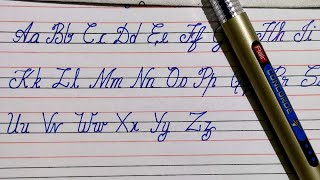 Aa Bb Cc Dd Ee Ff Hh Ii
Kk Ll Mm Nn Oo Pp
Uu Vv Ww Xx Yy Zz